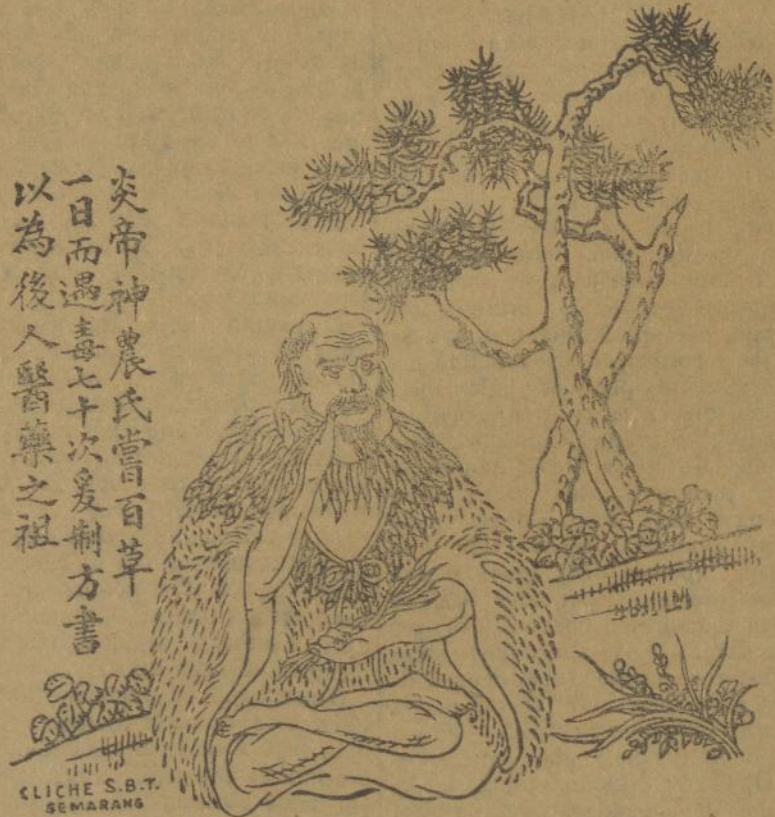 炎帝神農氏嘗百草
一日而遇毒七十次爰制方書
以為後人醫藥之祖
CLICHE S.B.T.
SEMARANG